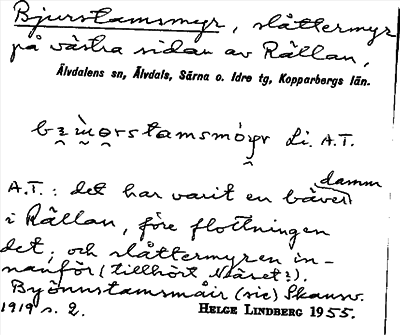 Bjurstamsmyr, slåttermyr
på västra sidan av Rällan,
Älvdalens sn, Älvdals, Särna o. Idre tg, Kopparbergs län.
Li. A.T.
damm
A.T.: det har varit en bäver
i Rällan, före flottningen
det, och slåttermyren in-
nanför (tillhört Näset?).
Byönnstamsmåir (sic) Skansv.
1919 s. 2. HELGE LINDBERG 1955.